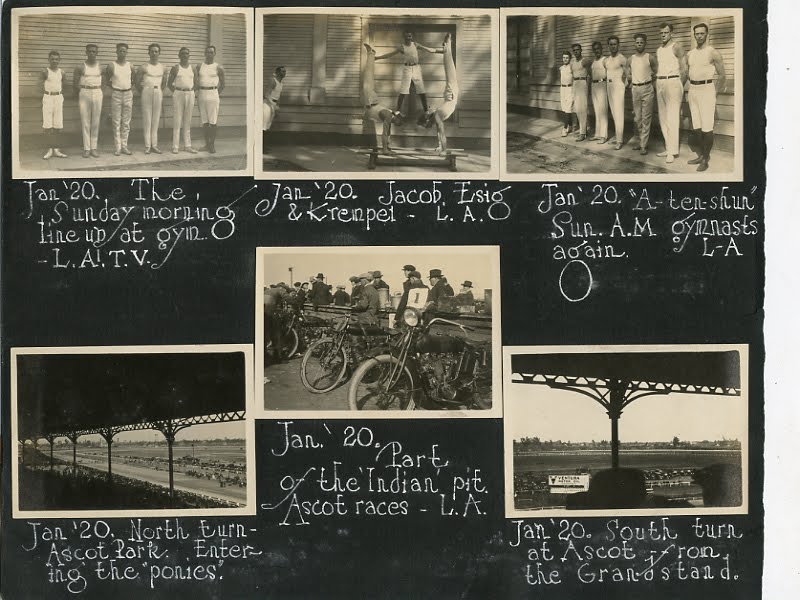 Jan '20. The
Sunday morning
line up at gym.
- L.A. T.V.
Jan '20. Jacob, Esig
& Krempel - L.A.
Jan '20. "A-ten-shun"
Sun. A.M gymnasts
again. L-A
1
Jan. '20. Part
of the 'Indian' pit.
Ascot races - L.A.
VENTURA
Jan '20. North turn-
Ascot Park. Enter-
ing the "ponies".
Jan '20. South turn
at Ascot - from
the Grandstand.